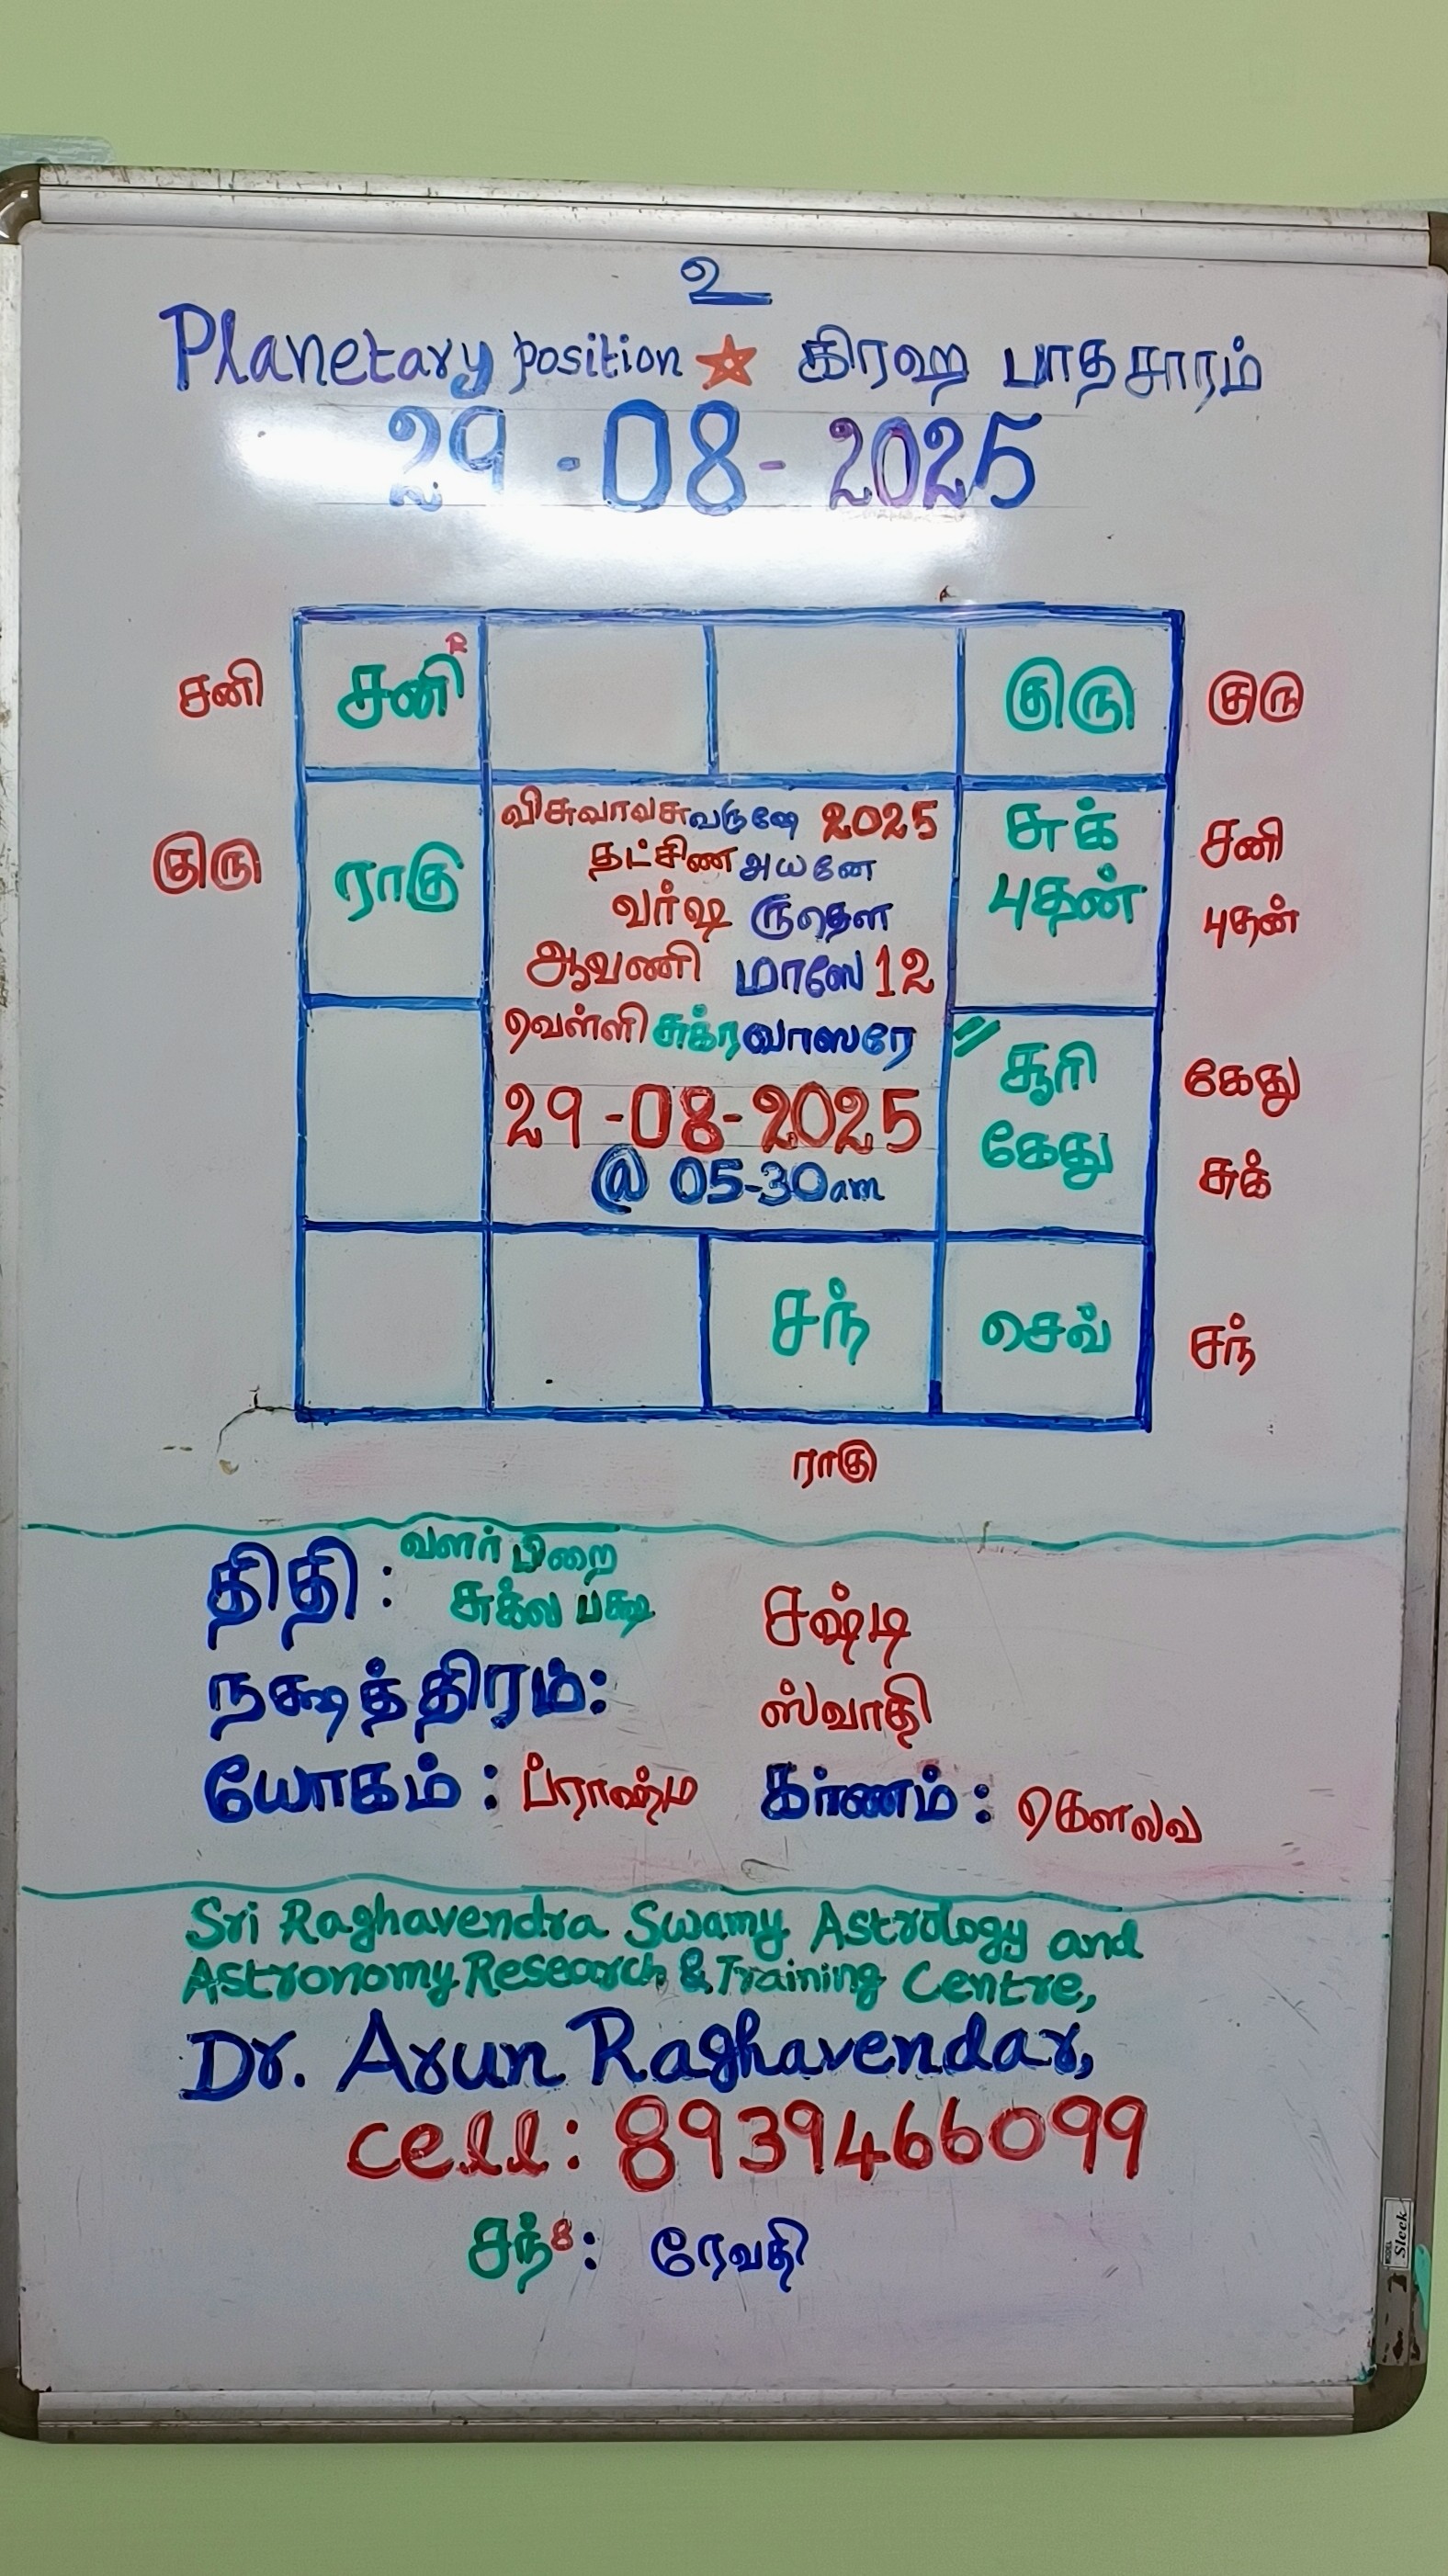 உ
Planetary position ☆ கிரஹ பாதசாரம்
29-08-2025
சனி சனி R குரு குரு
விசுவாவசுவருஷே 2025
தட்சிண அயனே
வர்ஷ ருதௌ
ஆவணி மாஸே 12
வெள்ளி சுக்ரவாஸரே
29-08-2025
@ 05-30am
குரு ராகு
சுக் சனி
புதன் புதன்
சூரி கேது
கேது சுக்
சந் செவ் சந்
ராகு
திதி: வளர்பிறை
சுக்ல பக்ஷ சஷ்டி
நக்ஷத்திரம்: ஸ்வாதி
யோகம்: ப்ராஹ்ம கர்ணம்: கௌலவ
Sri Raghavendra Swamy Astrology and
Astronomy Research & Training Centre,
Dr. Arun Raghavendar,
cell: 8939466099
சந்8: ரேவதி
Sleek